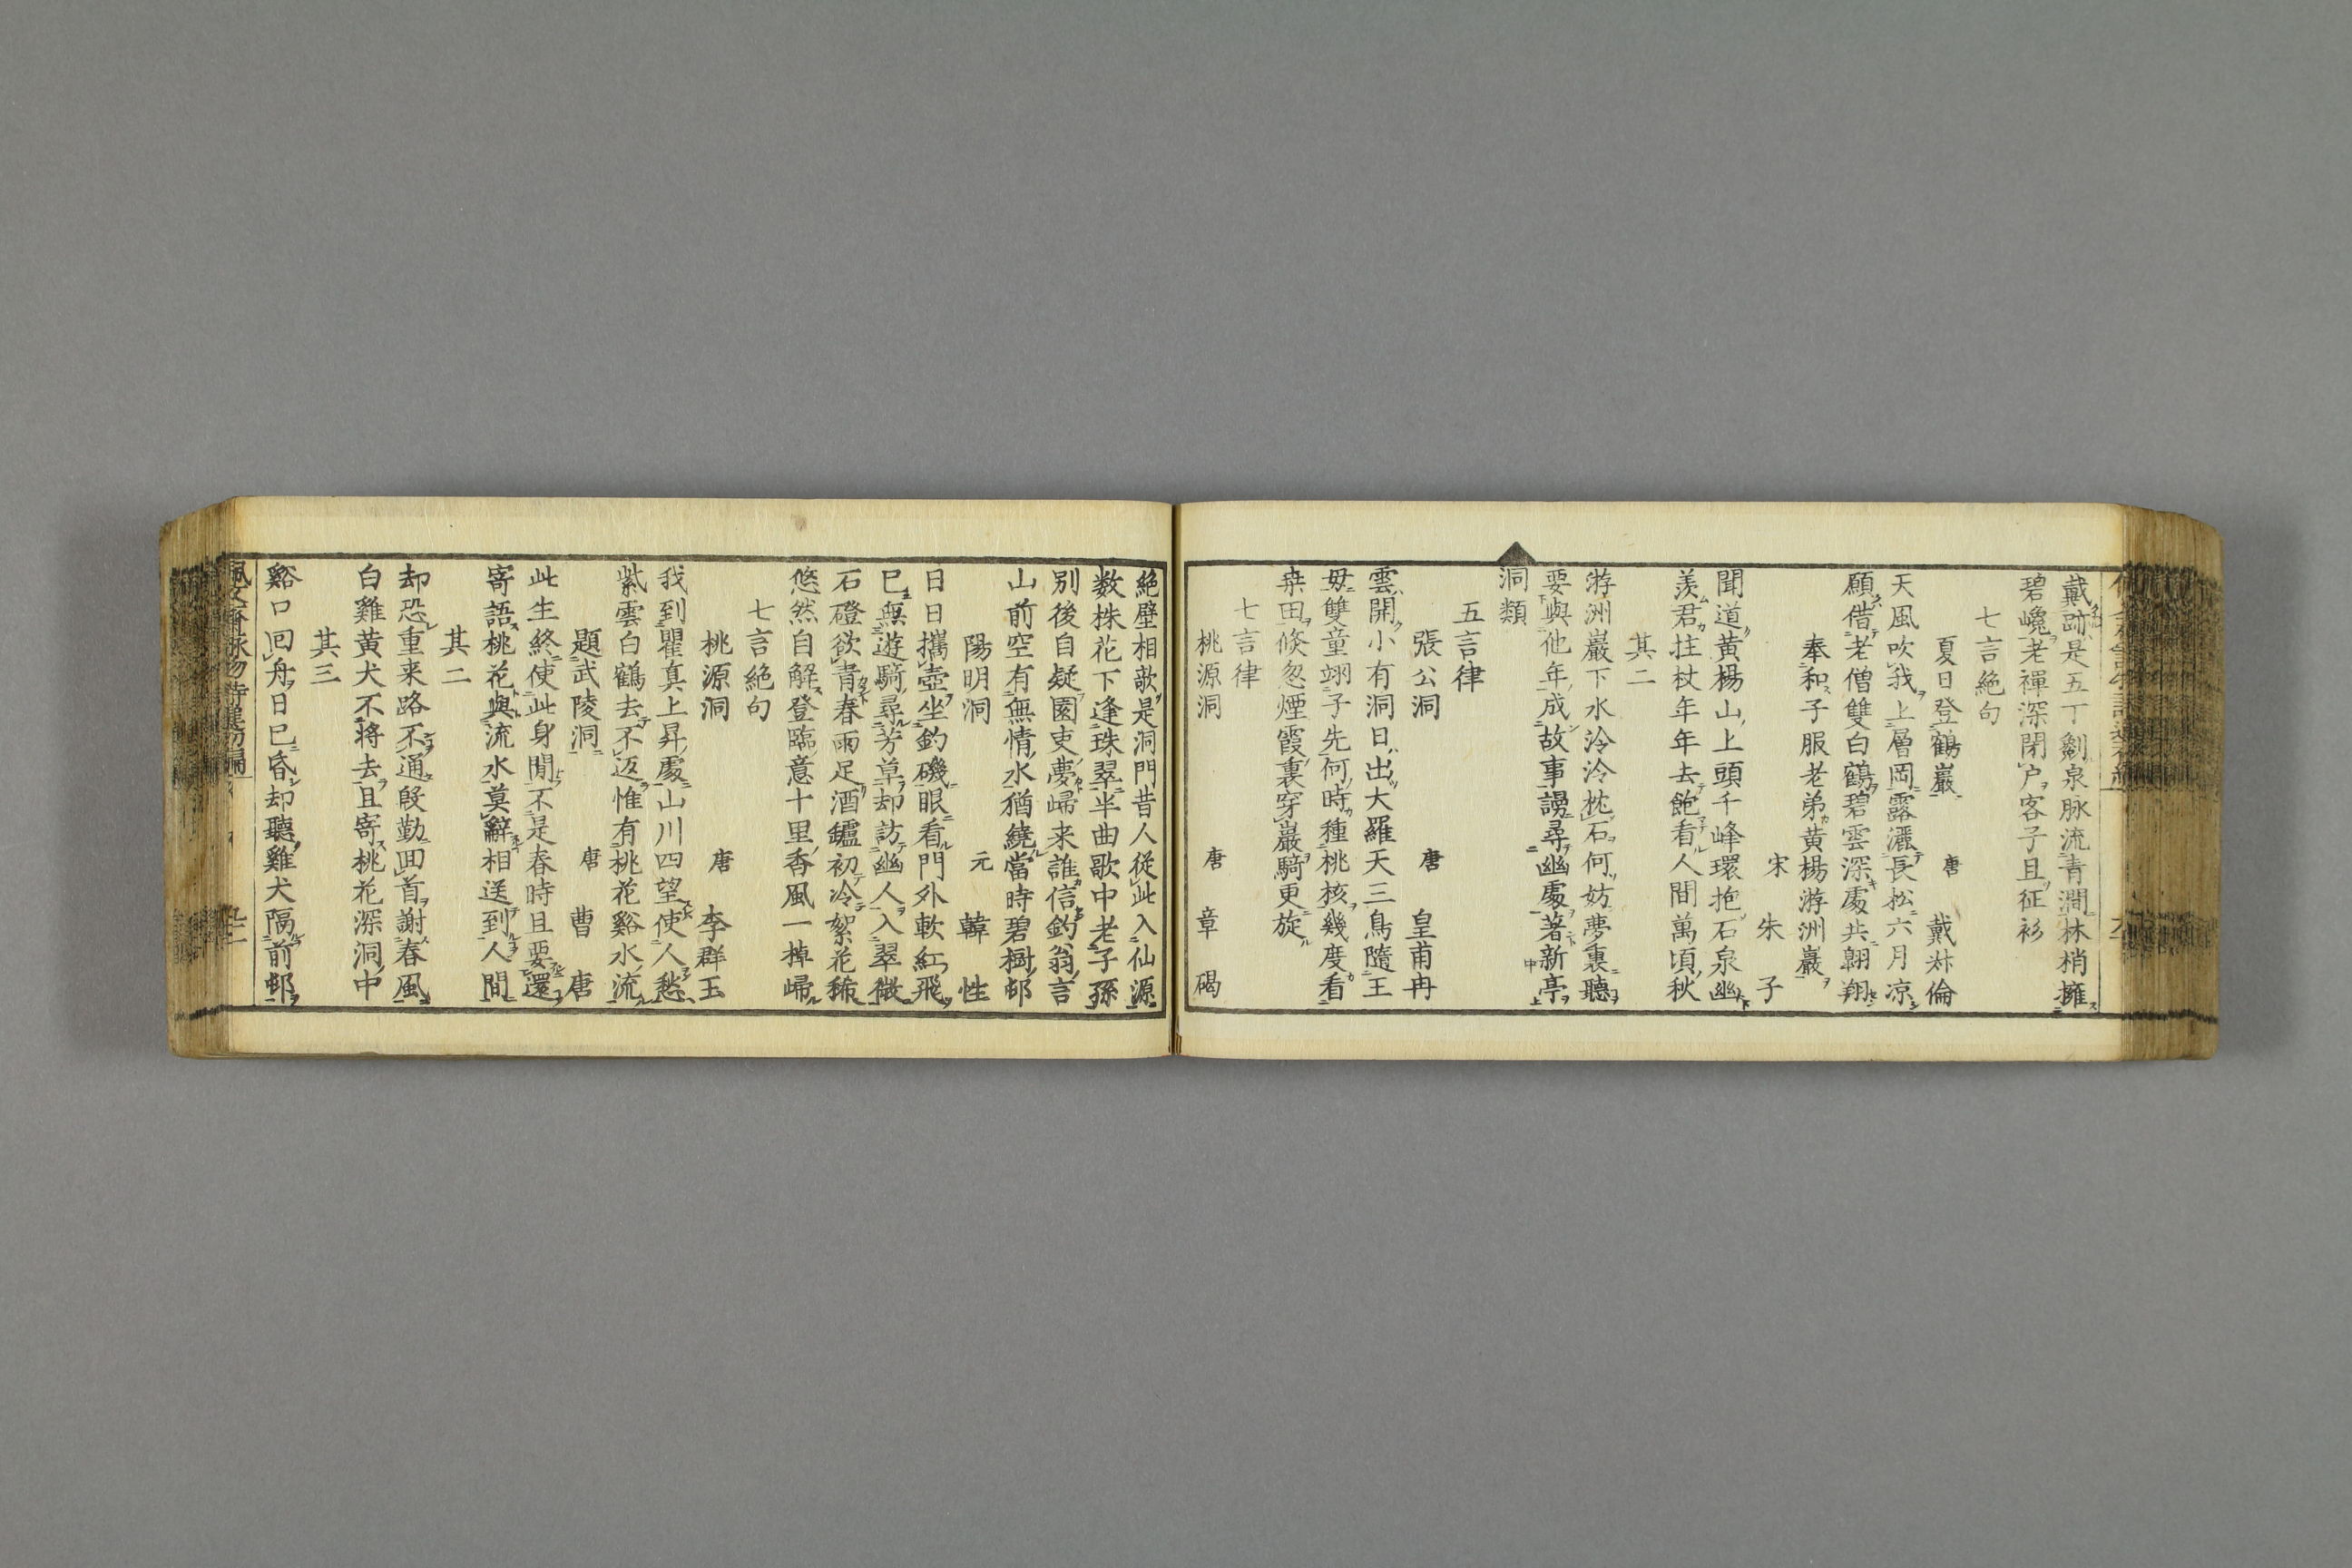 戴跡是五丁劚泉脉流青澗林梢擁
碧巉老禪深閉户客子且征衫
七言絶句
夏日登鶴巖 唐 戴叔倫
天風吹我上層岡露灑長松六月凉
願借老僧雙白鶴碧雲深處共翺翔
奉和子服老弟黄楊游洲巖
宋 朱子
聞道黄楊山上頭千峰環抱石泉幽
羨君拄杖年年去飽看人間萬頃秋
其二
游洲巖下水泠泠枕石何妨夢裏聽
要與他年成故事謾尋幽處著新亭
洞類
五言律
張公洞 唐 皇甫冉
雲開小有洞日出大羅天三鳥隨王
母雙童翊子先何時種桃核幾度看
桒田倐忽煙霞裏穿巖騎更旋
七言律
桃源洞 唐 章碣
絶壁相歌是洞門昔人從此入仙源
数株花下逢珠翠半曲歌中老子孫
别後自疑園吏夢歸来誰信釣翁言
山前空有無情水猶繞當時碧樹邨
陽明洞 元 韓性
日日攜壺坐釣磯眼看門外軟紅飛
已無遊騎尋芳草却訪幽人入翠微
石磴欲青春雨足酒鑪初冷絮花稀
悠然自解登臨意十里香風一棹歸
七言絶句
桃源洞 唐 李群玉
我到瞿真上昇處山川四望使人愁
紫雲白鶴去不返惟有桃花谿水流
題武陵洞 唐 曹唐
此生終使此身閒不是春時且要還
寄語桃花與流水莫辭相送到人間
其二
却恐重来路不通殷勤回首謝春風
白雞黄犬不将去且寄桃花深洞中
其三
谿口回舟日已昏却聽雞犬隔前邨